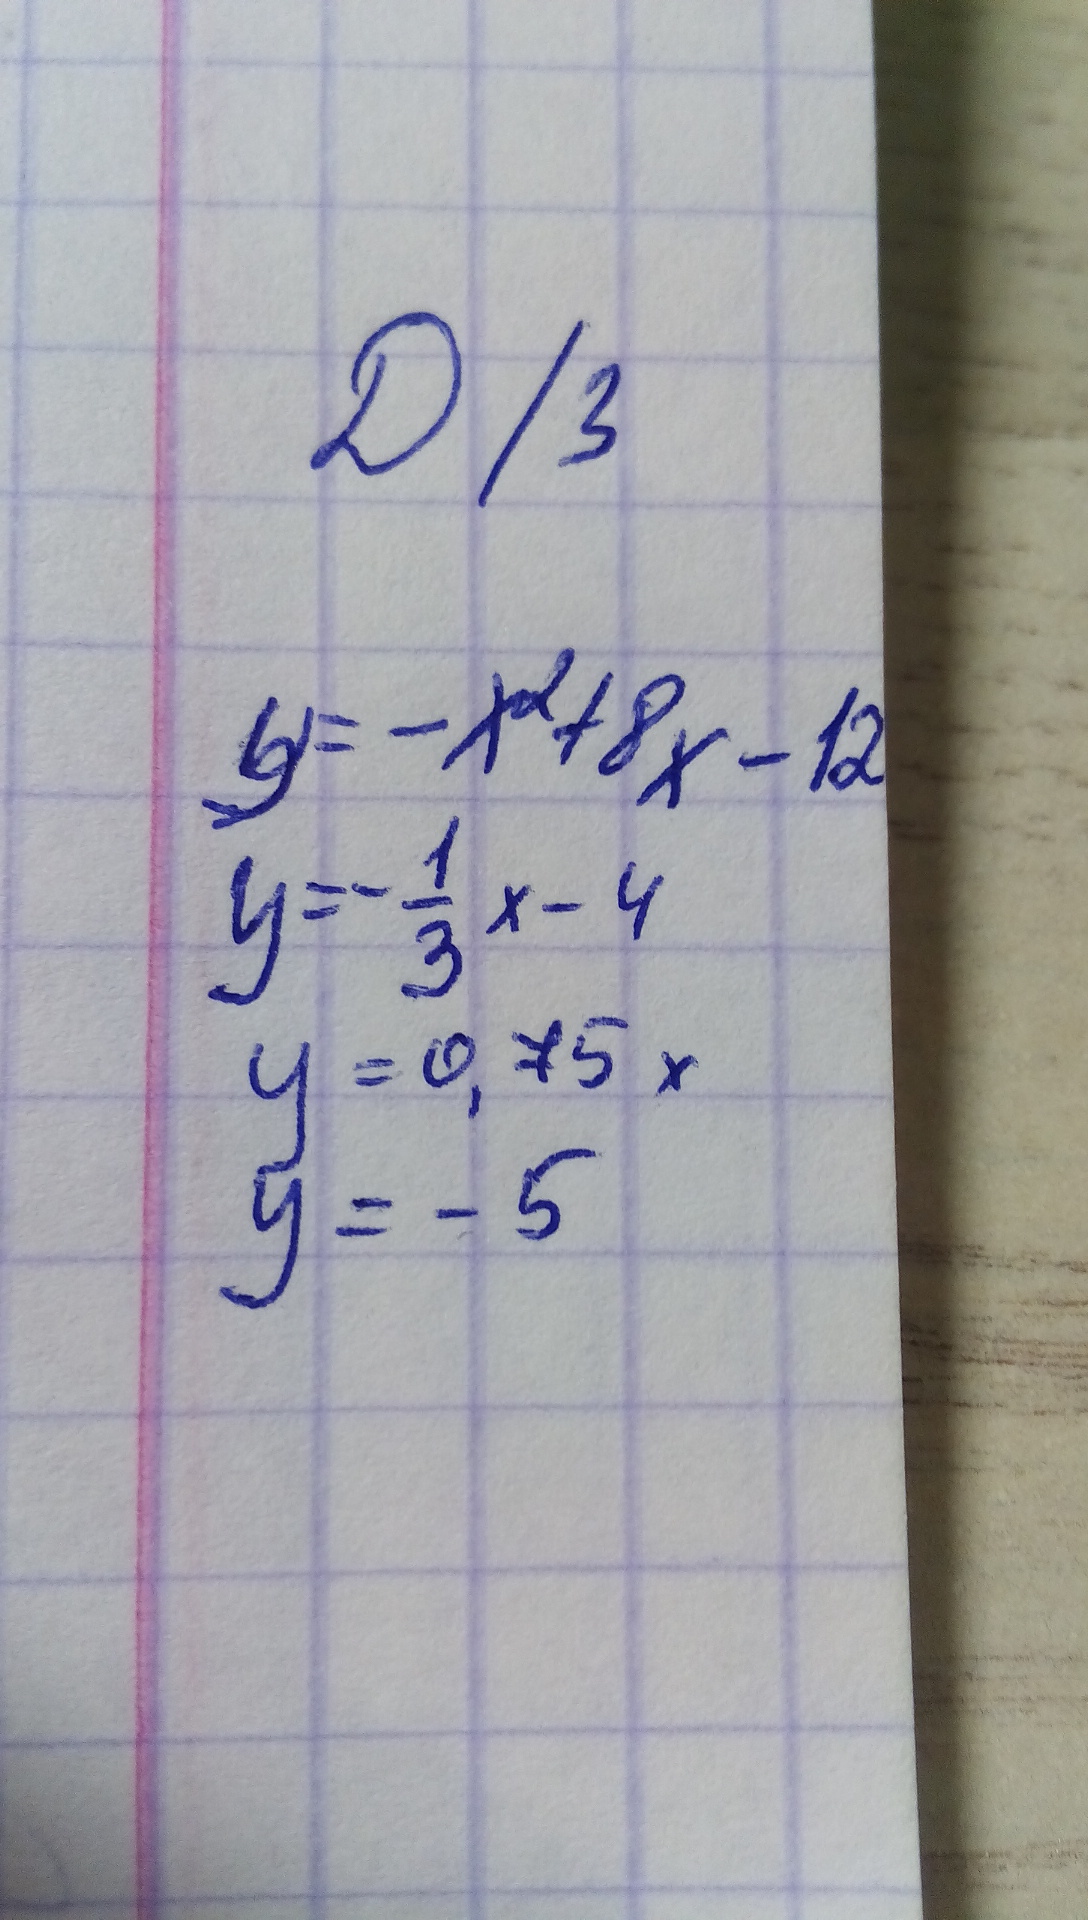 Д/З
y = -x²+8x-12
y = -1/3 x - 4
y = 0,75 x
y = -5